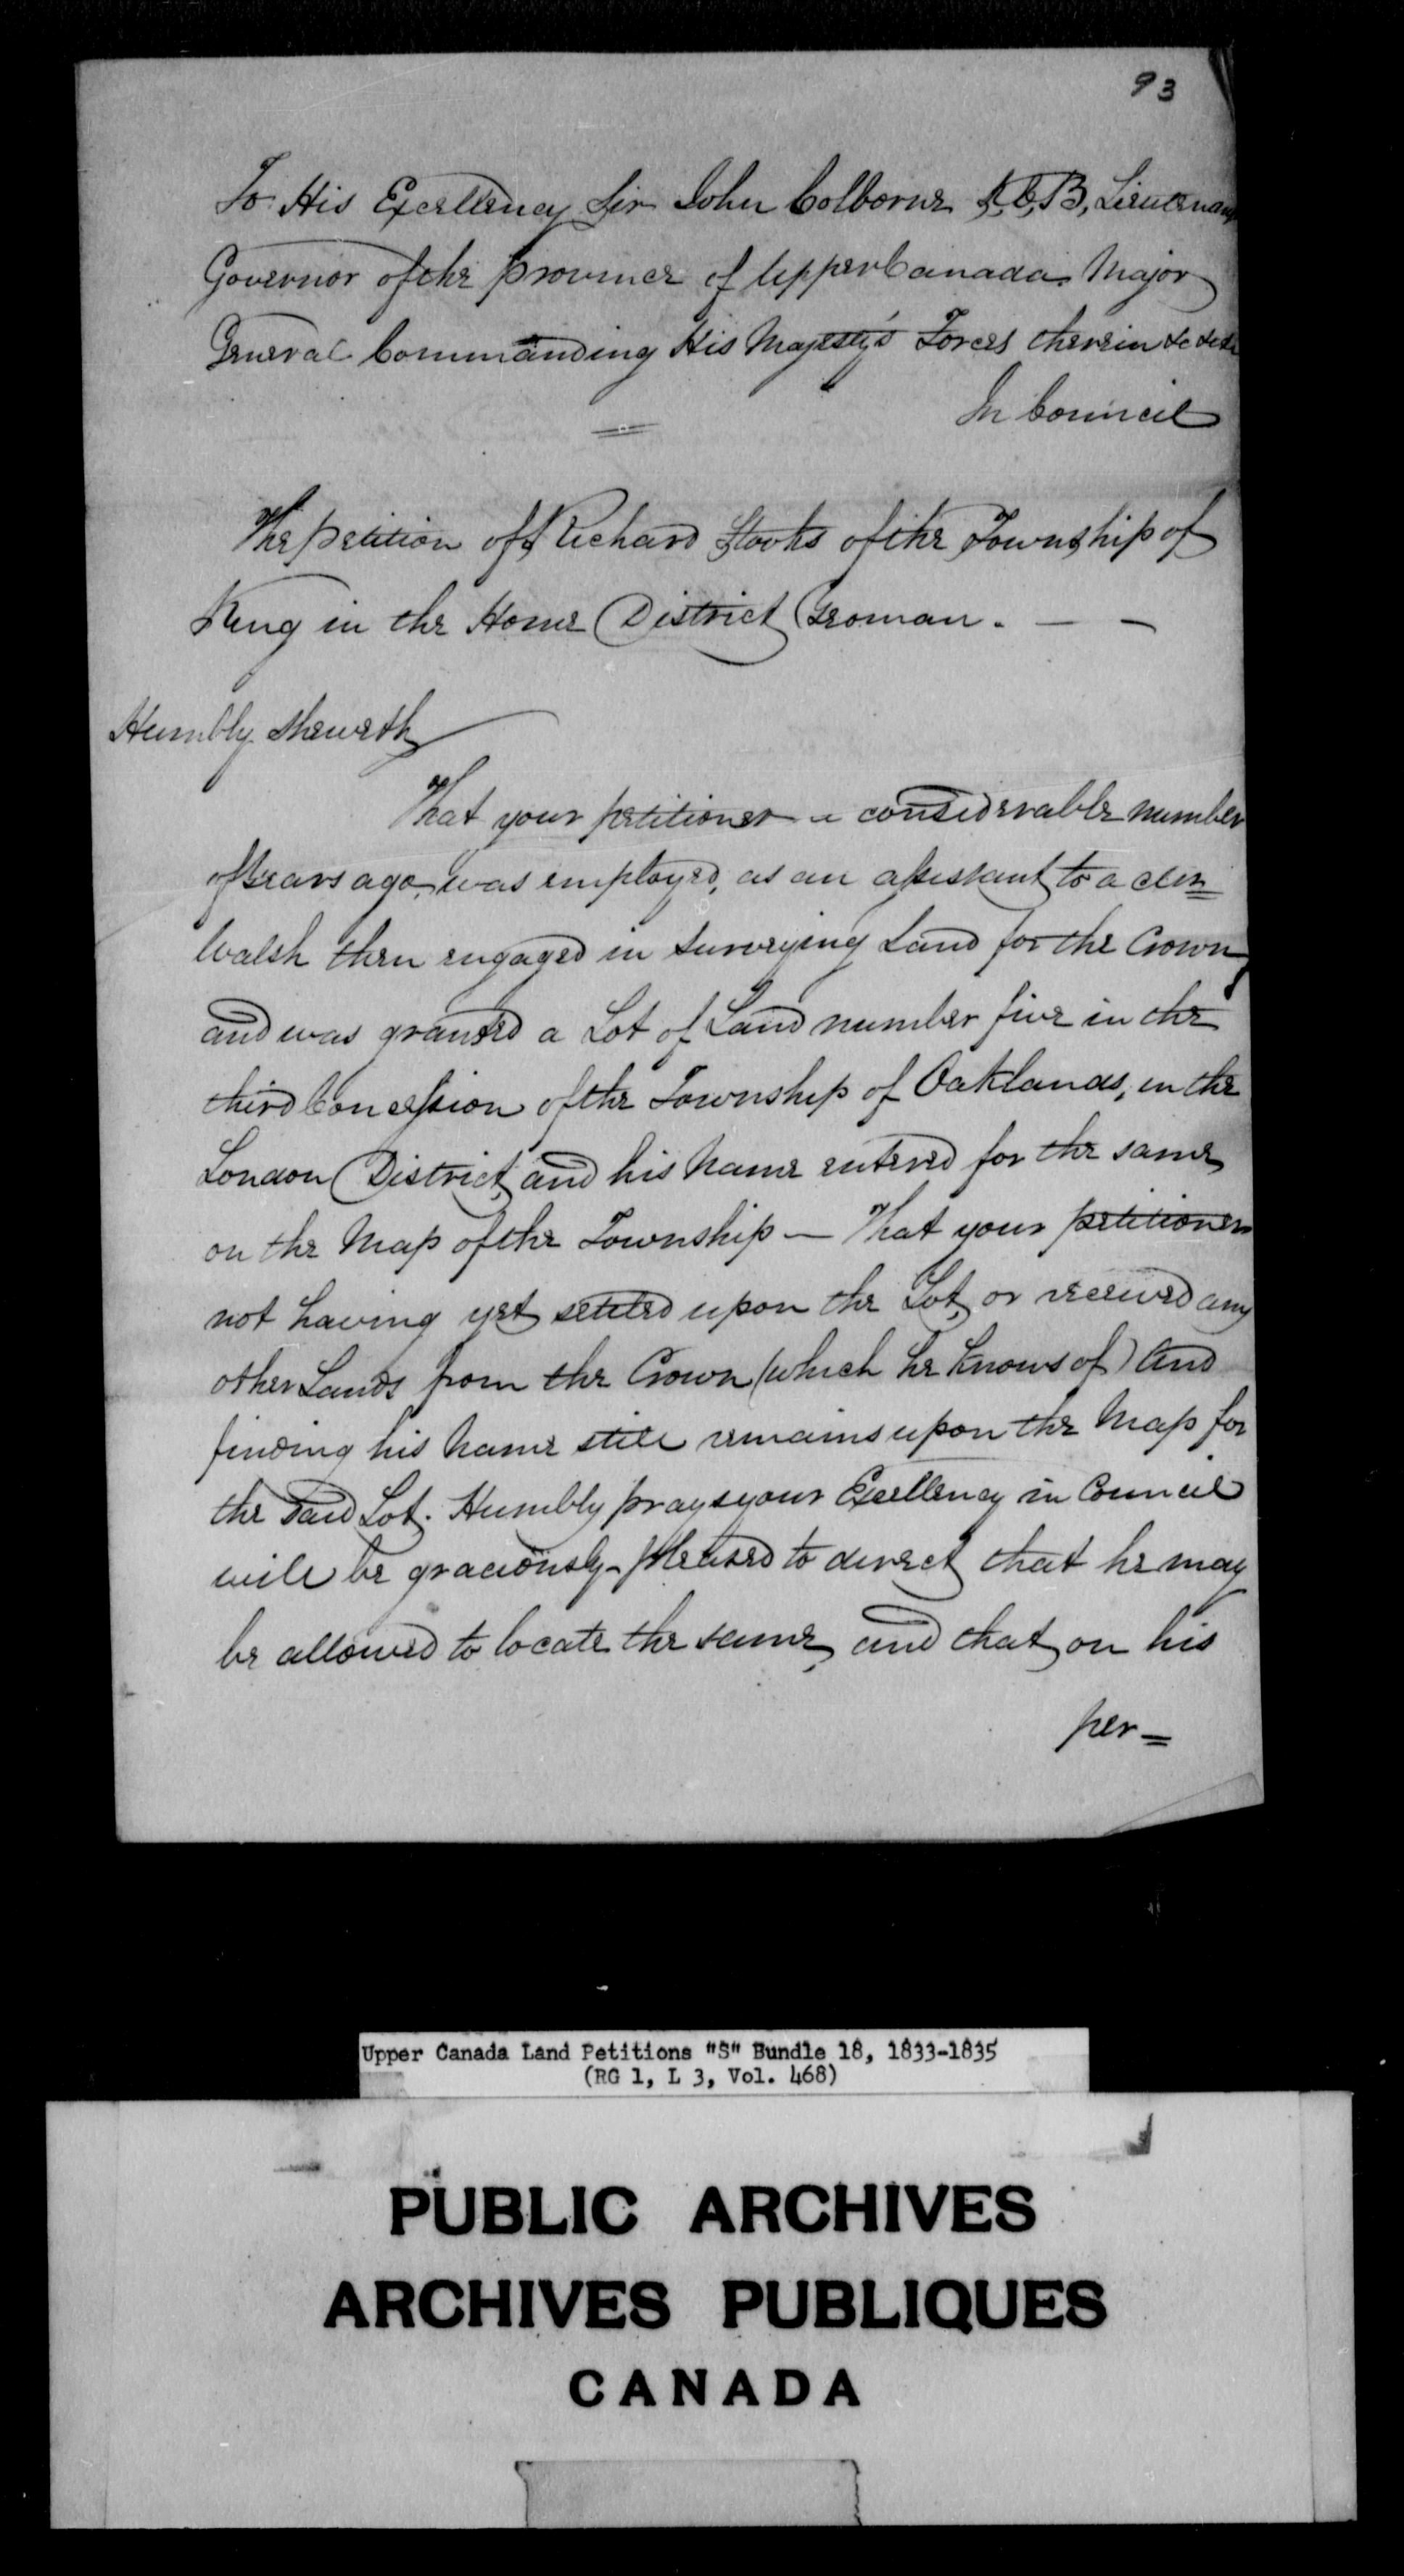 93
To His Excellency Sir John Colborne K,C,B, Lieutenant
Governor of the province of Upper Canada Major
General Commanding His Majesty's Forces therein &c &c &c
In Council
The petition of Richard Stooks of the Township of
King in the Home District Yeoman. — —
Humbly Sheweth
That your petitioner a considerable number
of Years ago, was employed, as an assistant to a
Walsh then engaged in Surveying Land for the Crown,
and was granted a Lot of Land number five in the
third Concession of the Township of Oaklands, in the
London District, and his Name entered for the same
on the Map of the Township — That your petitioner
not having yet settled upon the Lot, or received any
other Lands from the Crown (which he Knows of) And
finding his Name still remains upon the Map for
the said Lot. Humbly prays your Excellency in Council
will be graciously pleased to direct that he may
be allowed to locate the same, and that on his
per=
Upper Canada Land Petitions "S" Bundle 18, 1833-1835
(RG 1, L 3, Vol. 468)
PUBLIC ARCHIVES
ARCHIVES PUBLIQUES
CANADA